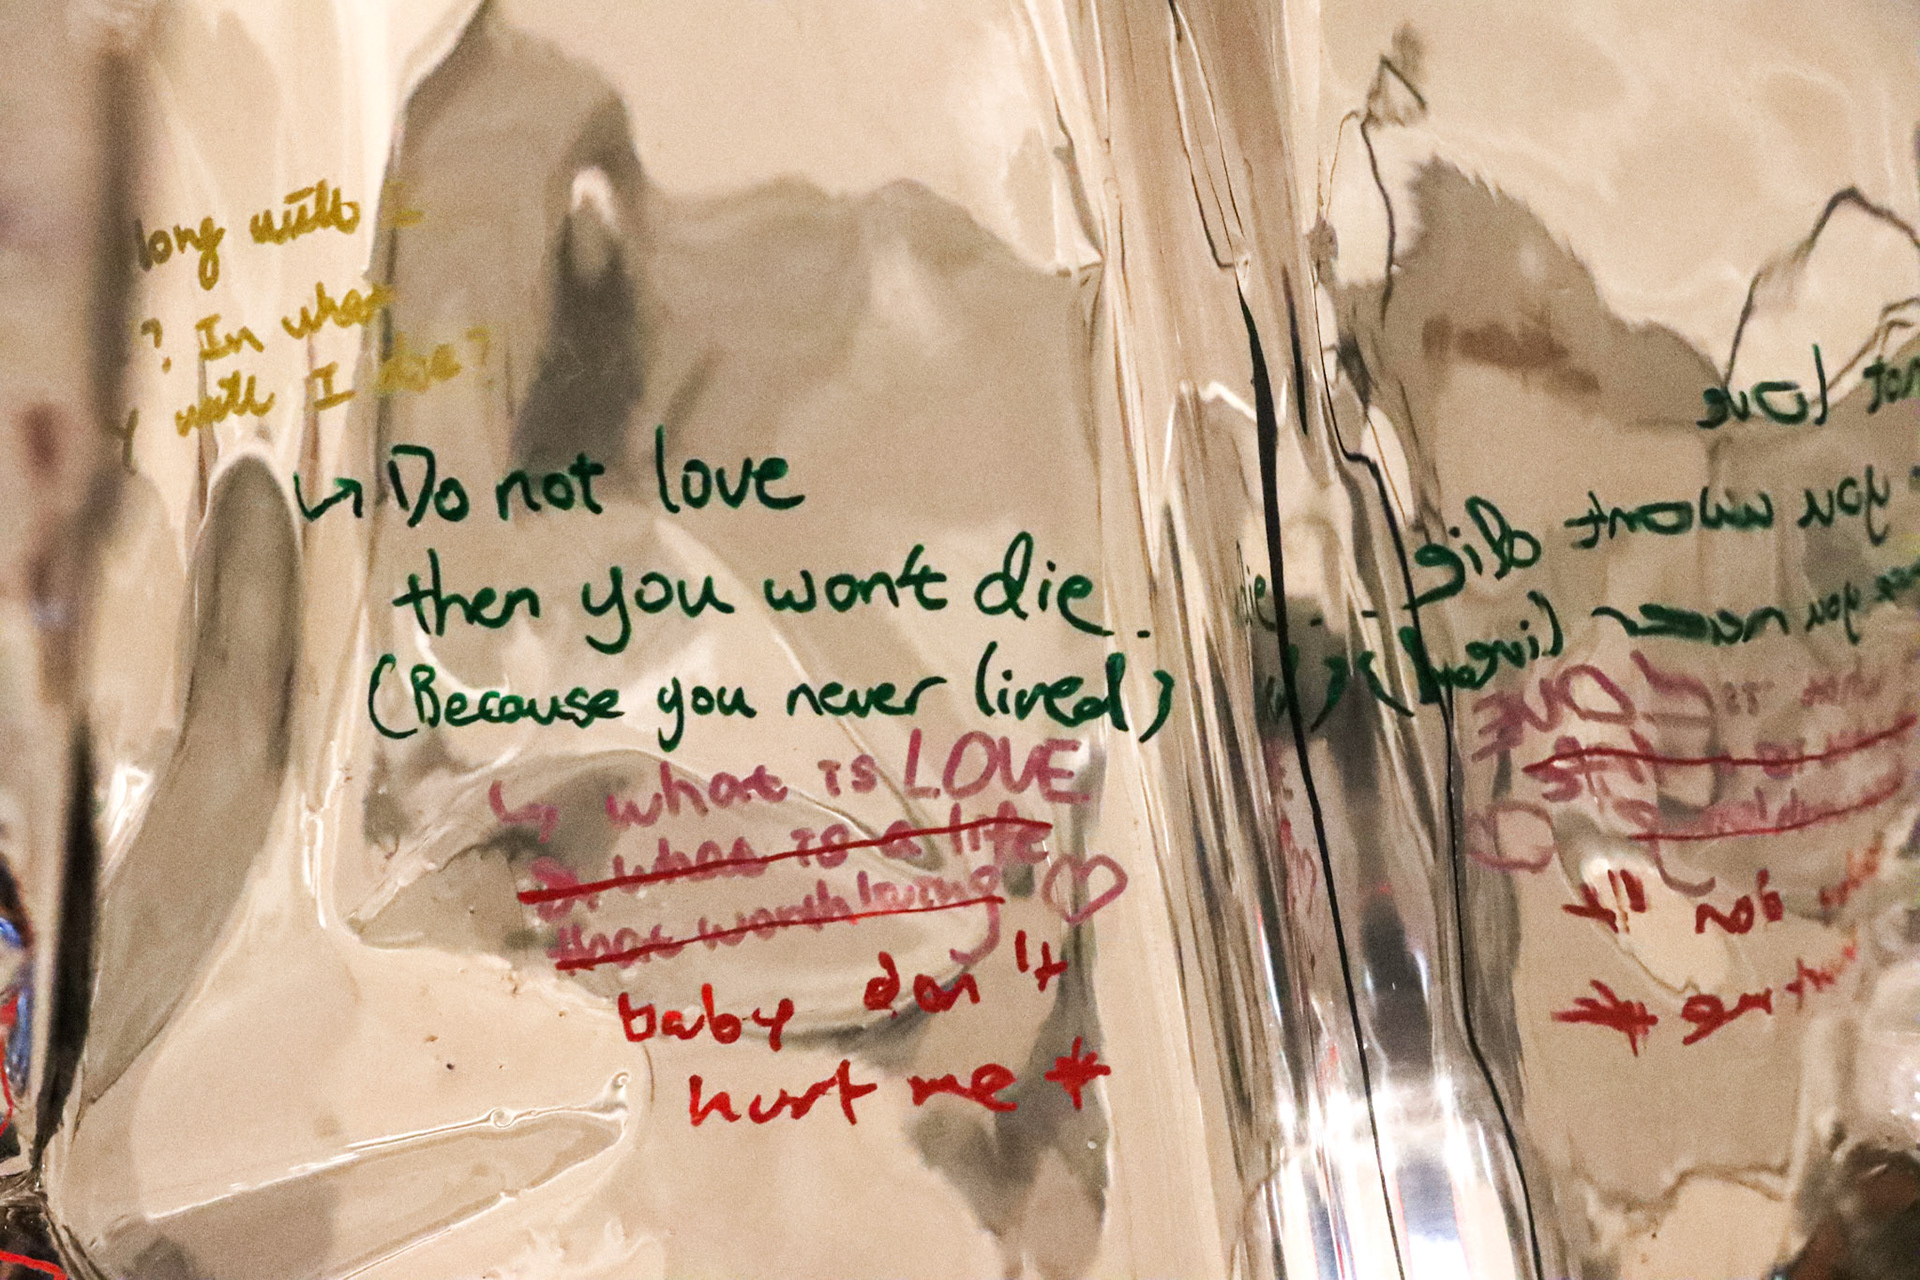 long will I
? In what
y will I die?
↳ Do not love
then you won't die.
(Because you never lived)
↳ what is LOVE
what is a life
that worth loving ♡
baby don't
hurt me *